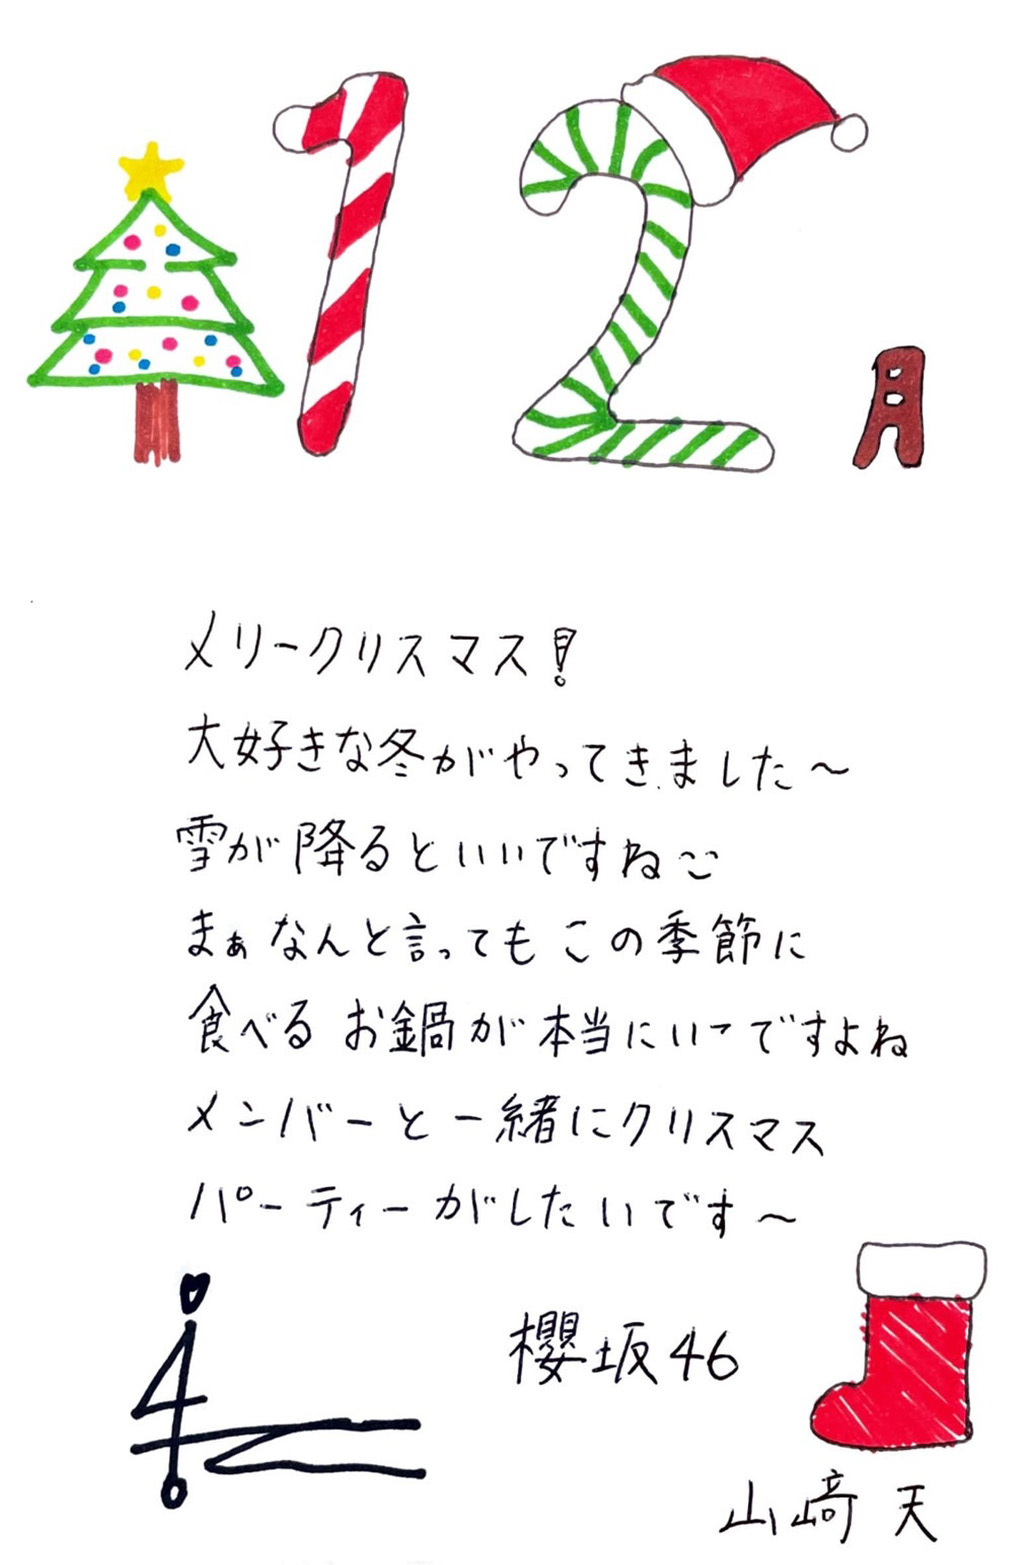 12月
メリークリスマス!
大好きな冬がやってきました〜
雪が降るといいですね
まぁなんと言ってもこの季節に
食べる お鍋が本当にいーですよね
メンバーと一緒にクリスマス
パーティーがしたいです〜
櫻坂46
山﨑 天